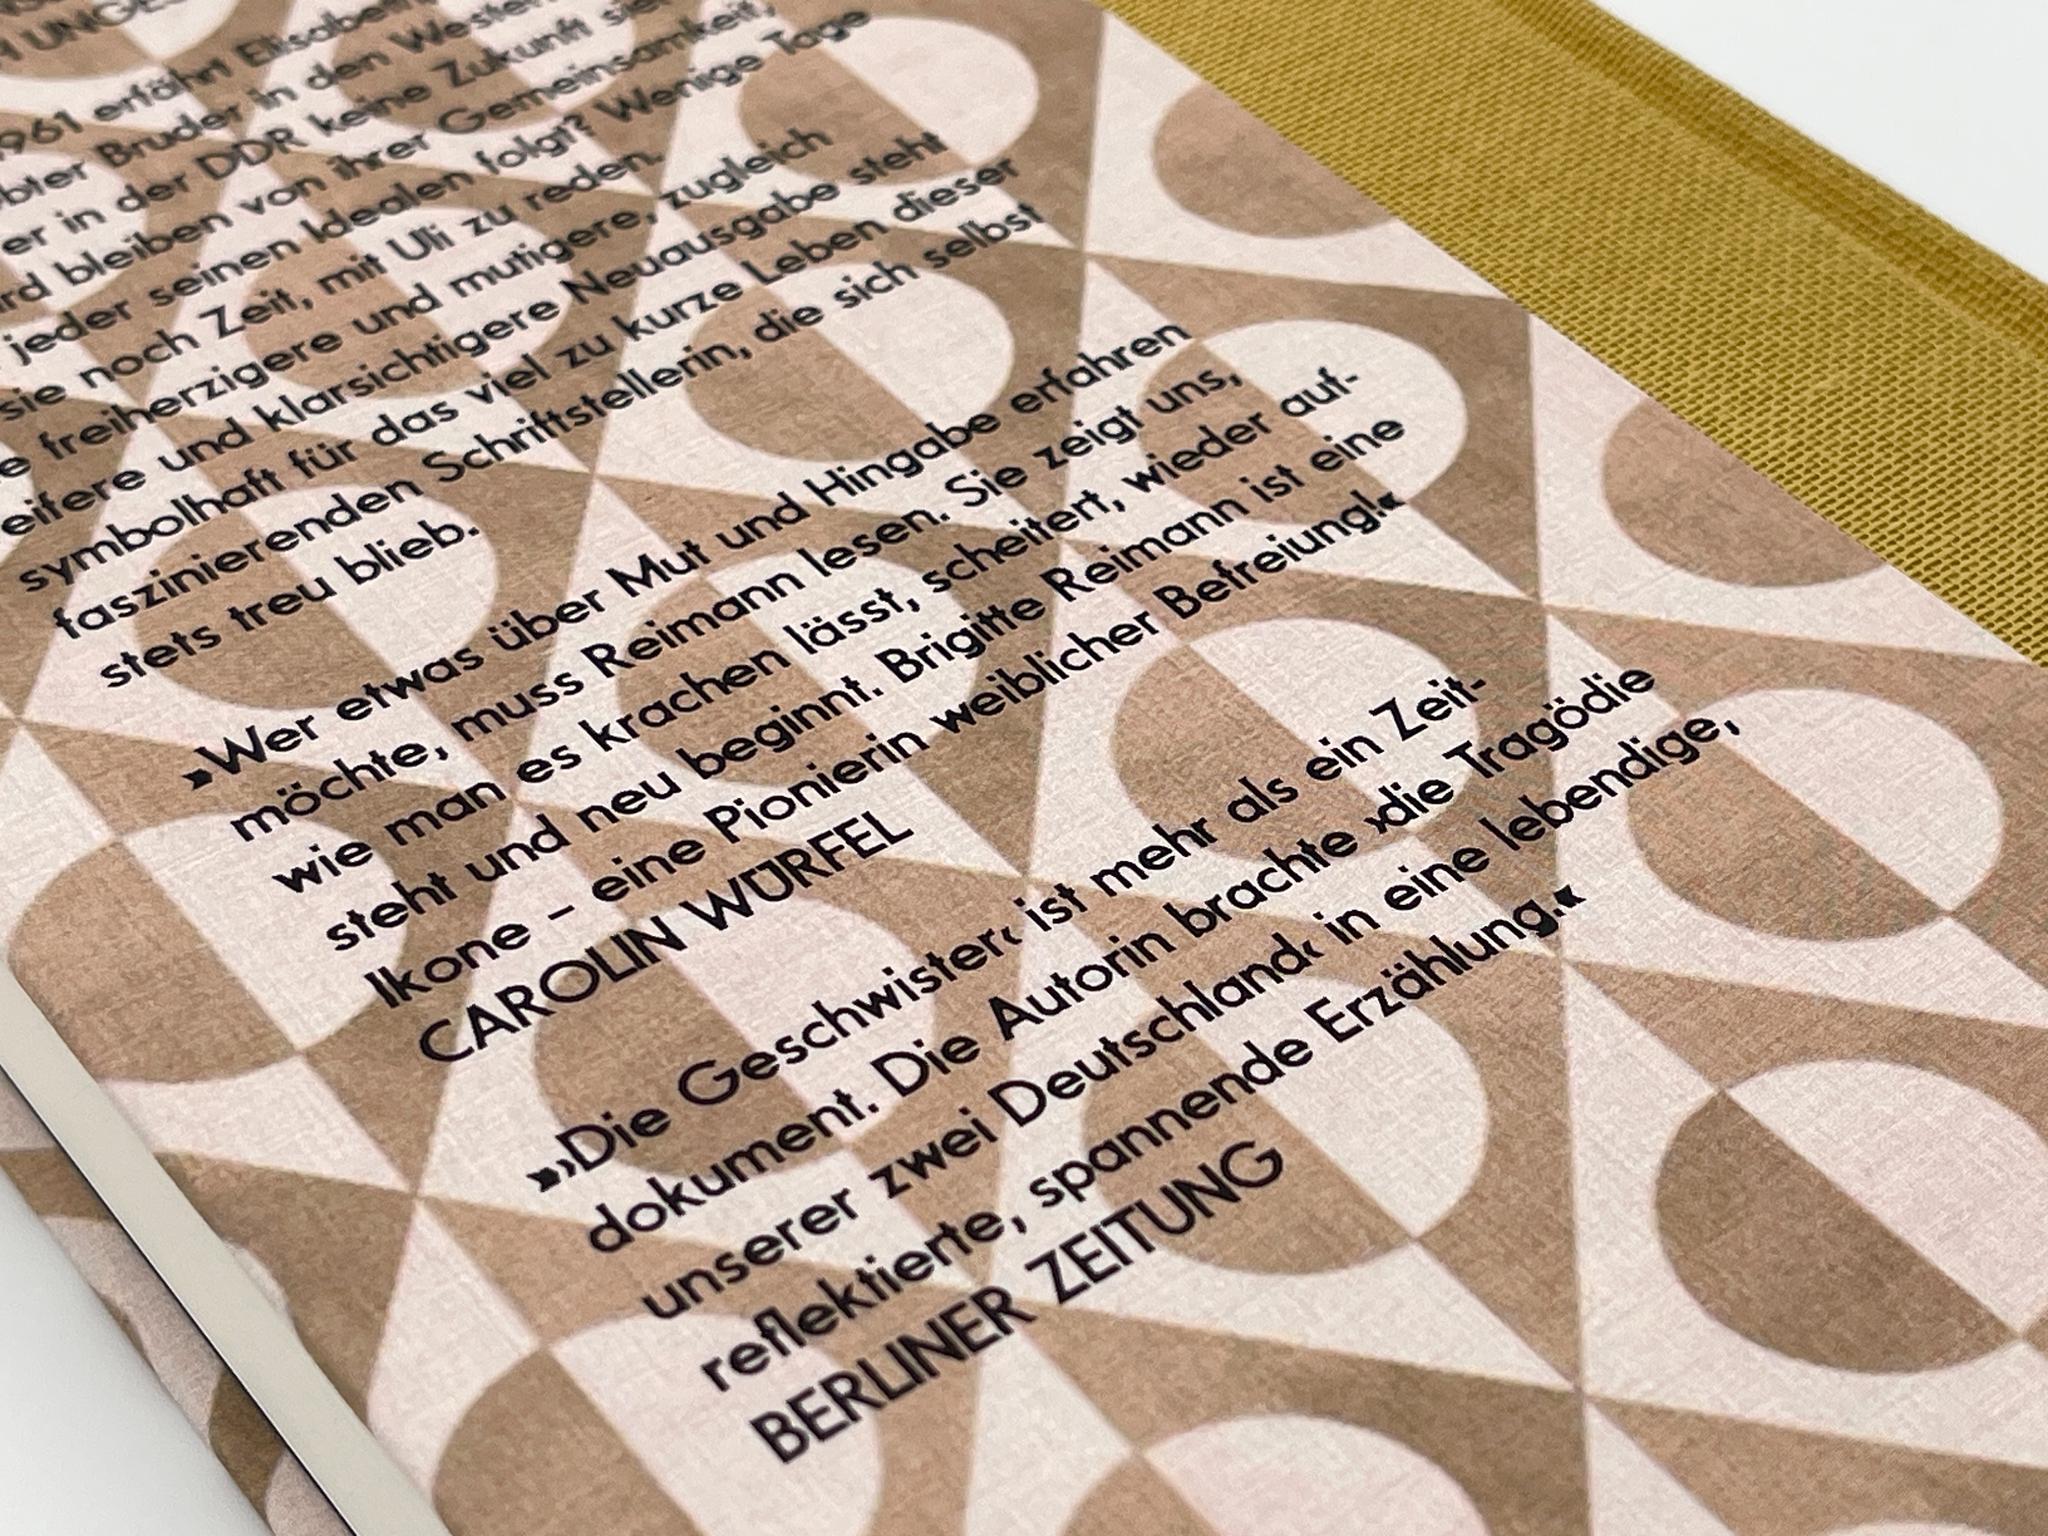 H UNGES
1961 erfährt Elisabeth
Bruder in den Westen
er in der DDR keine Zukunft
bleiben von ihrer Gemeinsamkeit,
jeder seinen Idealen folgt? Wenige Tage
sie noch Zeit, mit Uli zu reden.
freiherzigere und mutigere, zugleich
und klarsichtigere Neuausgabe steht
symbolhaft für das viel zu kurze Leben dieser
faszinierenden Schriftstellerin, die sich selbst
stets treu blieb.
»Wer etwas über Mut und Hingabe erfahren
möchte, muss Reimann lesen. Sie zeigt uns,
wie man es krachen lässt, scheitert, wieder auf-
steht und neu beginnt. Brigitte Reimann ist eine
Ikone – eine Pionierin weiblicher Befreiung!«
CAROLIN WÜRFEL
»›Die Geschwister‹ ist mehr als ein Zeit-
dokument. Die Autorin brachte ›die Tragödie
unserer zwei Deutschland‹ in eine lebendige,
reflektierte, spannende Erzählung.«
BERLINER ZEITUNG